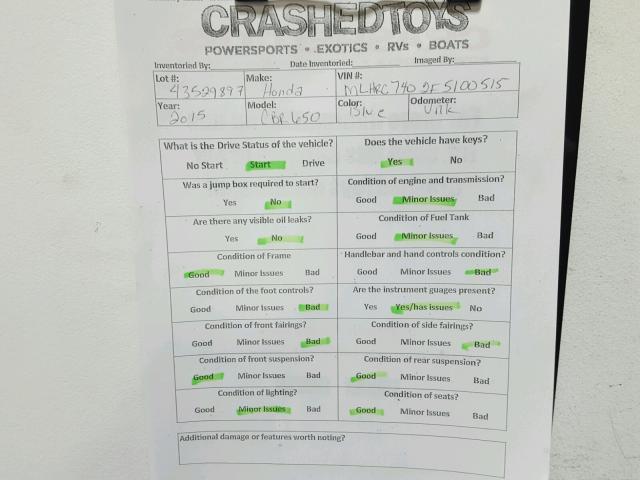 CRASHEDTOYS
POWERSPORTS • EXOTICS • RVs • BOATS
Inventoried By: Date Inventoried: Imaged By:
Lot #: 43529897 Make: Honda VIN #: MLHRC740 2F5100515
Year: 2015 Model: CBR 650 Color: Blue Odometer: Unk
What is the Drive Status of the vehicle? Does the vehicle have keys?
No Start Start Drive Yes No
Was a jump box required to start? Condition of engine and transmission?
Yes No Good Minor Issues Bad
Are there any visible oil leaks? Condition of Fuel Tank
Yes No Good Minor Issues Bad
Condition of Frame Handlebar and hand controls condition?
Good Minor Issues Bad Good Minor Issues Bad
Condition of the foot controls? Are the instrument guages present?
Good Minor Issues Bad Yes Yes/has issues No
Condition of front fairings? Condition of side fairings?
Good Minor Issues Bad Good Minor Issues Bad
Condition of front suspension? Condition of rear suspension?
Good Minor Issues Bad Good Minor Issues Bad
Condition of lighting? Condition of seats?
Good Minor Issues Bad Good Minor Issues Bad
Additional damage or features worth noting?